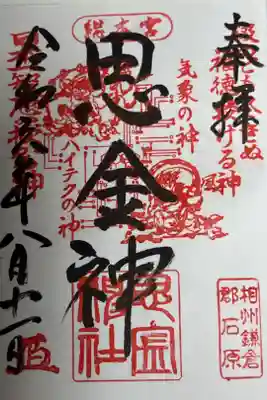 奉拝
ける神
気象の神
総本宮
思金神
ハイテクの神
令和六年八月十一日
思金神社
相州鎌倉
郡石原